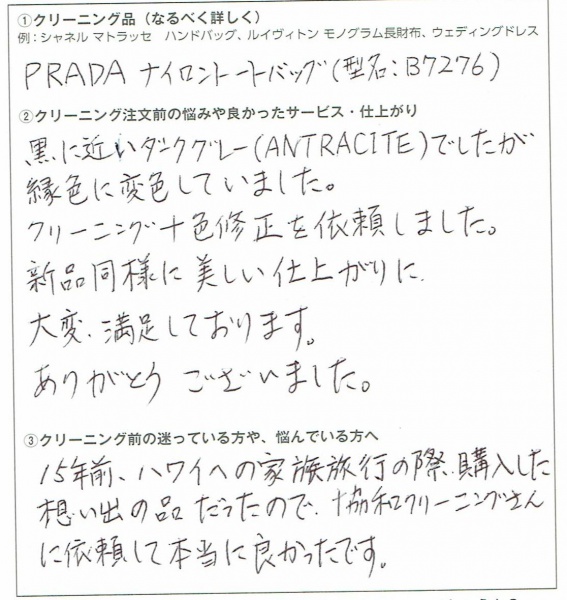 ①クリーニング品（なるべく詳しく）
例：シャネル マトラッセ　ハンドバッグ、ルイヴィトン モノグラム長財布、ウェディングドレス
PRADA ナイロントートバッグ(型名：B7276)
②クリーニング注文前の悩みや良かったサービス・仕上がり
黒に近いダークグレー(ANTRACITE)でしたが
縁色に変色していました。
クリーニング＋色修正を依頼しました。
新品同様に美しい仕上がりに
大変、満足しております。
ありがとうございました。
③クリーニング前の迷っている方や、悩んでいる方へ
15年前、ハワイへの家族旅行の際、購入した
想い出の品だったので、協和クリーニングさん
に依頼して本当に良かったです。